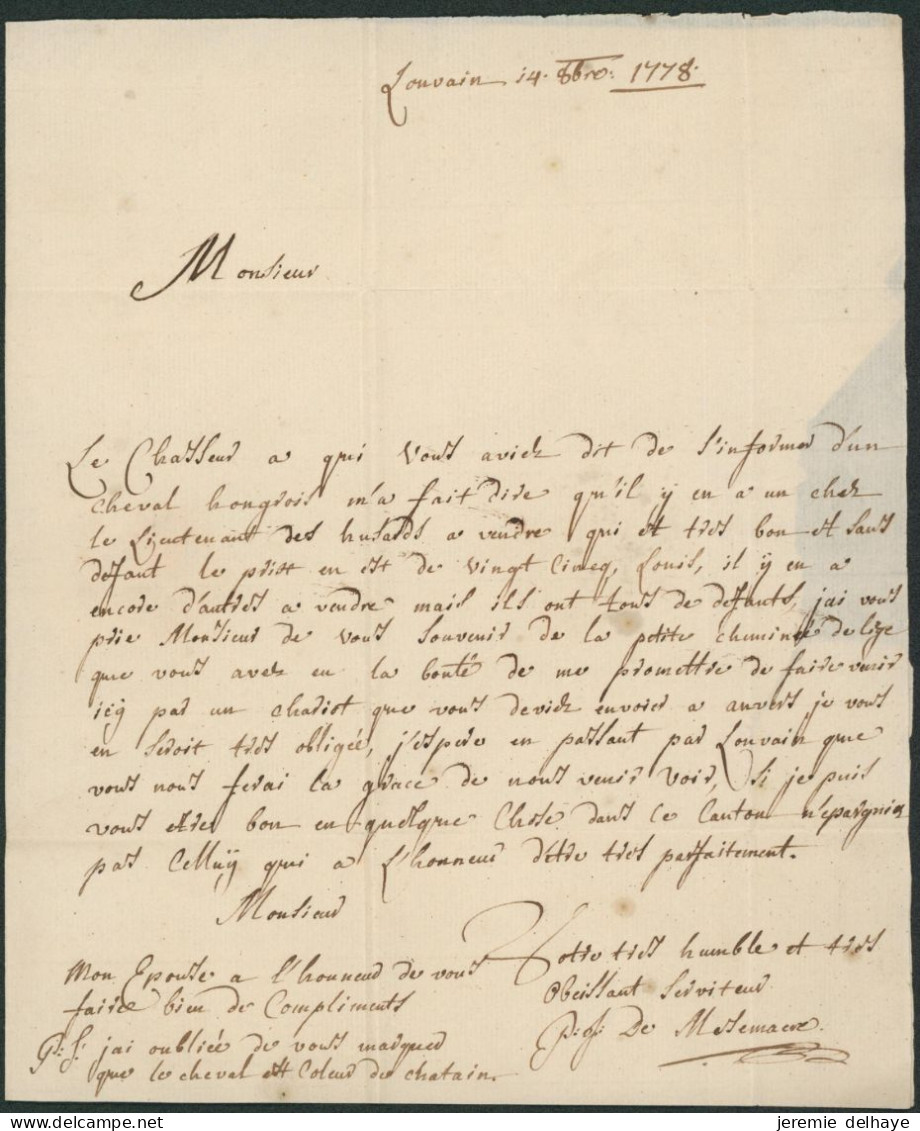 Louvain 14. 8bre: 1778.
Monsieur
Le Chasseur a qui vous aviez dit de s'informer d'un
cheval hongrois m'a fait dire qu'il y en a un chez
le Lieutenant des husards a vendre qui est tres bon et sans
defaut le prix en est de vingt Cincq Louis, il y en a
encore d'autres a vendre mais ils ont tous de defauts, jai vous
prie Monsieur de vous souvenir de la petite cheminée de
que vous avez eu la bonté de me promettre de faire venir
icy par un chariot que vous deviez envoier a anvers je vous
en seroit tres obligée, j'espere en passant par Louvain que
vous nous ferai la grace de nous venir voir, Si je puis
vous etre bon en quelque chose dans ce Canton n'epargniez
pas Celluy qui a L'honneur d'être tres parfaitement.
Monsieur
Votre tres humble et tres
Obeissant serviteur
De Mesemacre
Mon Epouse a l'honneur de vous
faire bien de Compliments
P: S: jai oubliée de vous marquer
que le cheval est Coleur de chatain.
jeremie delhaye